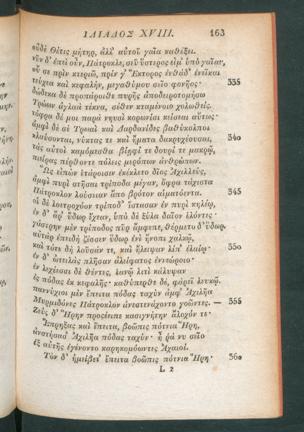 ΙΛΙΑΔΟΣ XVIII. 163
οὐδὲ Θέτις μήτηρ, ἀλλ' αὐτοῦ γαῖα καθέξει.
νῦν δ' ἐπεὶ οὖν, Πάτροκλε, σεῦ ὕστερος εἶμ' ὑπὸ γαῖαν,
οὔ σε πρὶν κτεριῶ, πρίν γ' Ἕκτορος ἐνθάδ' ἐνεῖκαι
τεύχεα καὶ κεφαλὴν, μεγαθύμου σεῖο φονῆος· 335
δώδεκα δὲ προπάροιθε πυρῆς ἀποδειροτομήσω
Τρώων ἀγλαὰ τέκνα, σέθεν κταμένοιο χολωθείς.
τόφρα δέ μοι παρὰ νηυσὶ κορωνίσι κείσεαι αὔτως·
ἀμφὶ δὲ σὲ Τρωαὶ καὶ Δαρδανίδες βαθύκολποι
κλαύσονται, νύκτας τε καὶ ἤματα δακρυχέουσαι, 340
τὰς αὐτοὶ καμόμεσθα βίηφί τε δουρί τε μακρῷ,
πιείρας πέρθοντε πόλεις μερόπων ἀνθρώπων.
Ὣς εἰπὼν ἑτάροισιν ἐκέκλετο δῖος Ἀχιλλεὺς,
ἀμφὶ πυρὶ στῆσαι τρίποδα μέγαν, ὄφρα τάχιστα
Πάτροκλον λούσειαν ἄπο βρότον αἱματόεντα. 345
οἱ δὲ λοετροχόον τρίποδ' ἵστασαν ἐν πυρὶ κηλέῳ,
ἐν δ' ἄρ' ὕδωρ ἔχεαν, ὑπὸ δὲ ξύλα δαῖον ἑλόντες·
γάστρην μὲν τρίποδος πῦρ ἄμφεπε, θέρμετο δ' ὕδωρ.
αὐτὰρ ἐπειδὴ ζέσσεν ὕδωρ ἐνὶ ἤνοπι χαλκῷ,
καὶ τότε δὴ λοῦσάν τε, καὶ ἤλειψαν λίπ' ἐλαίῳ· 350
ἐν δ' ὠτειλὰς πλῆσαν ἀλείφατος ἐννεώροιο·
ἐν λεχέεσσι δὲ θέντες, ἑανῷ λιτὶ κάλυψαν
ἐς πόδας ἐκ κεφαλῆς· καθύπερθε δὲ, φάρεϊ λευκῷ.
παννύχιοι μὲν ἔπειτα πόδας ταχὺν ἀμφ' Ἀχιλῆα
Μυρμιδόνες Πάτροκλον ἀνεστενάχοντο γοῶντες. — 355
Ζεὺς δ' Ἥρην προσέειπε κασιγνήτην ἄλοχόν τε·
Ἔπρηξας καὶ ἔπειτα, βοῶπις πότνια Ἥρη,
ἀνστήσασ' Ἀχιλῆα πόδας ταχύν· ἦ ῥά νυ σεῖο
ἐξ αὐτῆς ἐγένοντο καρηκομόωντες Ἀχαιοί.
Τὸν δ' ἠμείβετ' ἔπειτα βοῶπις πότνια Ἥρη· 360
L 2